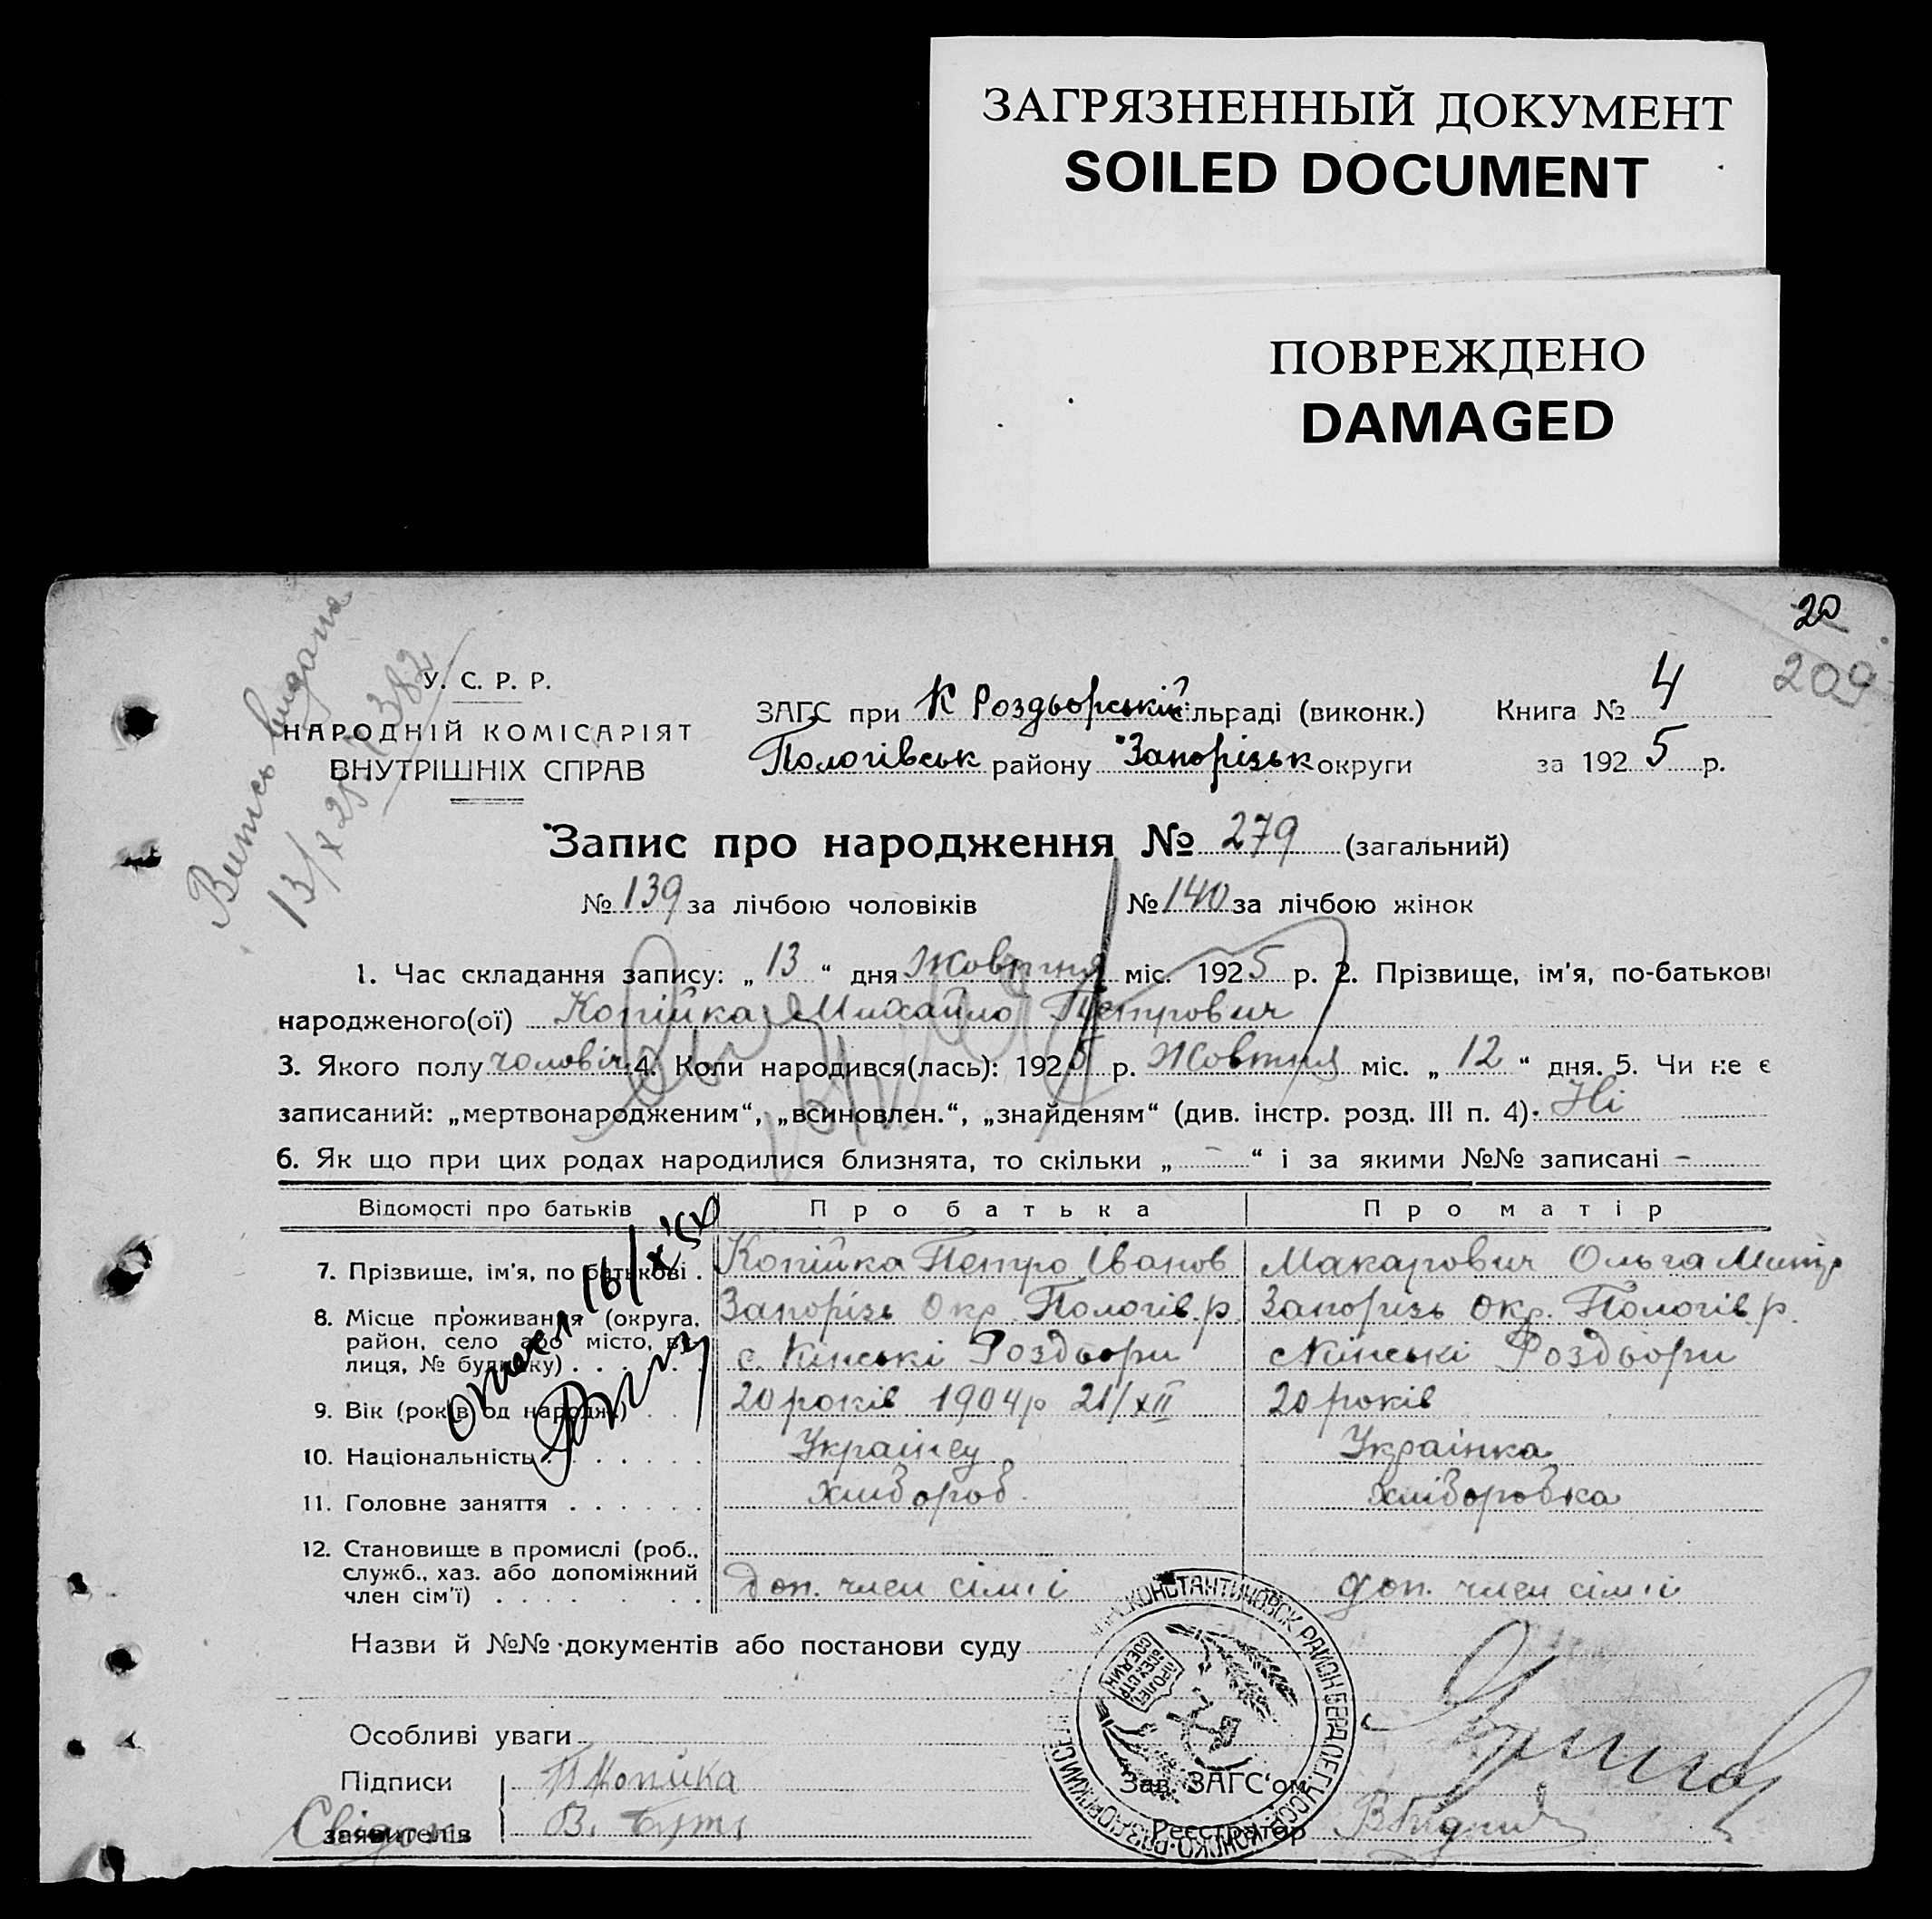 ЗАГРЯЗНЕННЫЙ ДОКУМЕНТ
SOILED DOCUMENT
ПОВРЕЖДЕНО
DAMAGED
20
209
Випись видана
13/X 25 382
У. С. Р. Р.
НАРОДНІЙ КОМІСАРІЯТ
ВНУТРІШНІХ СПРАВ
ЗАГС при К Роздьорській сільраді (виконк.)
Пологівськ району Запорізьк округи
Книга № 4
за 1925 р.
Запис про народження № 279 (загальний)
№ 139 за лічбою чоловіків № 140 за лічбою жінок
1. Час складання запису: „ 13 “ дня Жовтня міс. 1925 р. 2. Прізвище, ім'я, по-батькові
народженого(ої) Копійка Михайло Петрович
3. Якого полу чоловіч 4. Коли народився(лась): 1925 р. Жовтня міс. „ 12 “ дня. 5. Чи не є
записаний: „мертвонародженим“, „всиновлен.“, „знайденям“ (див. інстр. розд. III п. 4). Ні
6. Як що при цих родах народилися близнята, то скільки „ - “ і за якими №№ записані -
Відомості про батьків Про батька Про матір
7. Прізвище, ім'я, по батькові . Копійка Петро Іванов Макарович Ольга Митр
8. Місце проживання (округа, Запорізь Окр. Пологів. р Запорізь Окр. Пологів р.
район, село або місто, ву-
лиця, № будинку) . . . . . с. Кінські Роздьори с Кінські Роздьори
9. Вік (років од народж.) . . 20 років 1904р 21/XII 20 років
10. Національність . . . . . . . Українец Українка
11. Головне заняття . . . . . . хлібороб хліборовка
12. Становище в промислі (роб.,
служб., хаз. або допоміжний
член сім'ї) . . . . . . . доп. член сімї доп. член сімї
16/X
Назви й №№ документів або постанови суду
Особливі уваги
Підписи П Копійка
заявителів В.
Зав. ЗАГС'ом
Реєстратор
КОНСТАНТИНОВСК РАЙОН БЕРД ПЕТ УССР
ПРОЛЕТ ВСЕХ СТР СОЕДИН